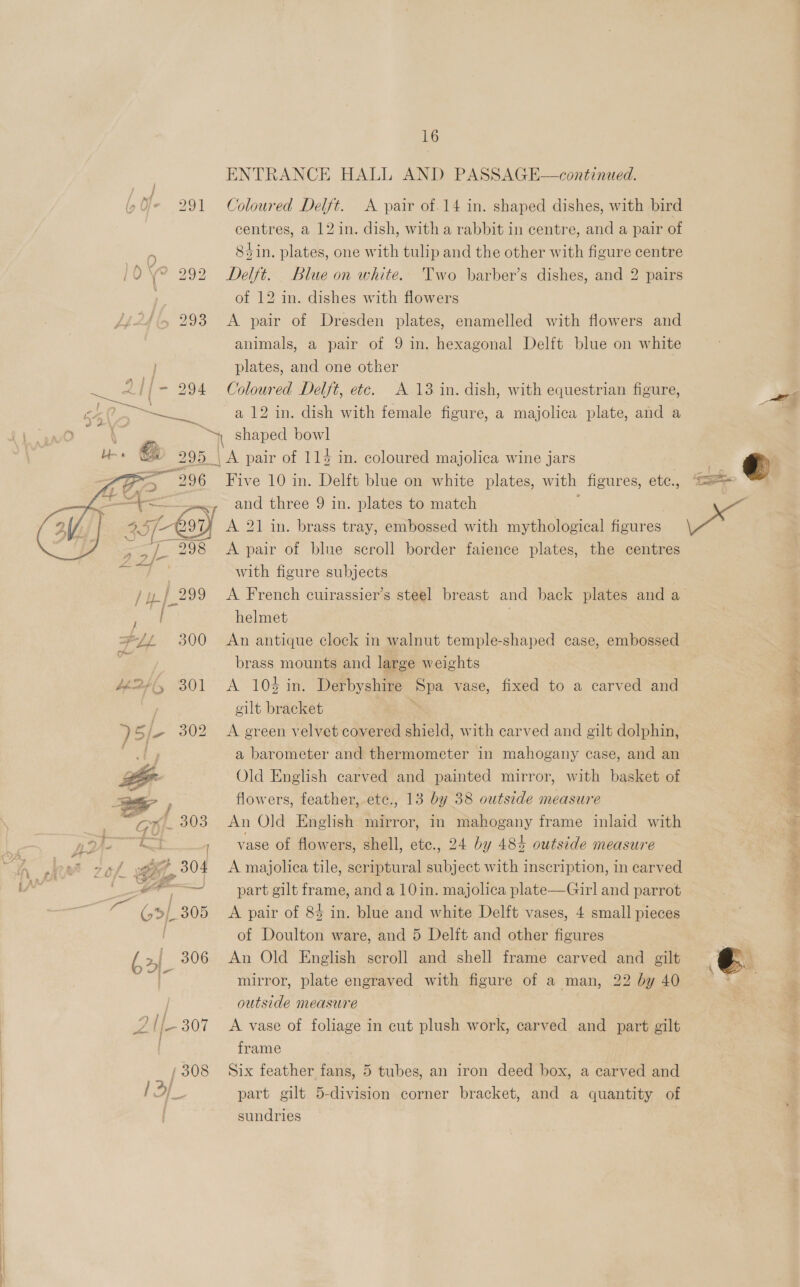 16
ENTRANCE HALL AND PASSAGE—continued.
60/- 291 Coloured Delft. A pair of 14 in. shaped dishes, with bird
centres, a 12 in. dish, with a rabbit in centre, and a pair of
8½in. plates, one with tulip and the other with figure centre
292 Delft. Blue on white. Two barber's dishes, and 2 pairs
of 12 in. dishes with flowers
293 A pair of Dresden plates, enamelled with flowers and
animals, a pair of 9 in. hexagonal Delft blue on white
plates, and one other
21/- 294 Coloured Delft, etc. A 13 in. dish, with equestrian figure,
a 12 in. dish with female figure, a majolica plate, and a
shaped bowl
295 A pair of 11½ in. coloured majolica wine jars
296 Five 10 in. Delft blue on white plates, with figures, etc.,
and three 9 in. plates to match
297 A 21 in. brass tray, embossed with mythological figures
22/- 298 A pair of blue scroll border faience plates, the centres
with figure subjects
299 A French cuirassier's steel breast and back plates and a
helmet
300 An antique clock in walnut temple-shaped case, embossed
brass mounts and large weights
301 A 10½ in. Derbyshire Spa vase, fixed to a carved and
gilt bracket
75/- 302 A green velvet covered shield, with carved and gilt dolphin,
a barometer and thermometer in mahogany case, and an
Old English carved and painted mirror, with basket of
flowers, feather, etc., 13 by 38 outside measure
303 An Old English mirror, in mahogany frame inlaid with
vase of flowers, shell, etc., 24 by 48½ outside measure
304 A majolica tile, scriptural subject with inscription, in carved
part gilt frame, and a 10in. majolica plate—Girl and parrot
65/- 305 A pair of 8½ in. blue and white Delft vases, 4 small pieces
of Doulton ware, and 5 Delft and other figures
63/- 306 An Old English scroll and shell frame carved and gilt
mirror, plate engraved with figure of a man, 22 by 40
outside measure
21/- 307 A vase of foliage in cut plush work, carved and part gilt
frame
308 Six feather fans, 5 tubes, an iron deed box, a carved and
13/- part gilt 5-division corner bracket, and a quantity of
sundries